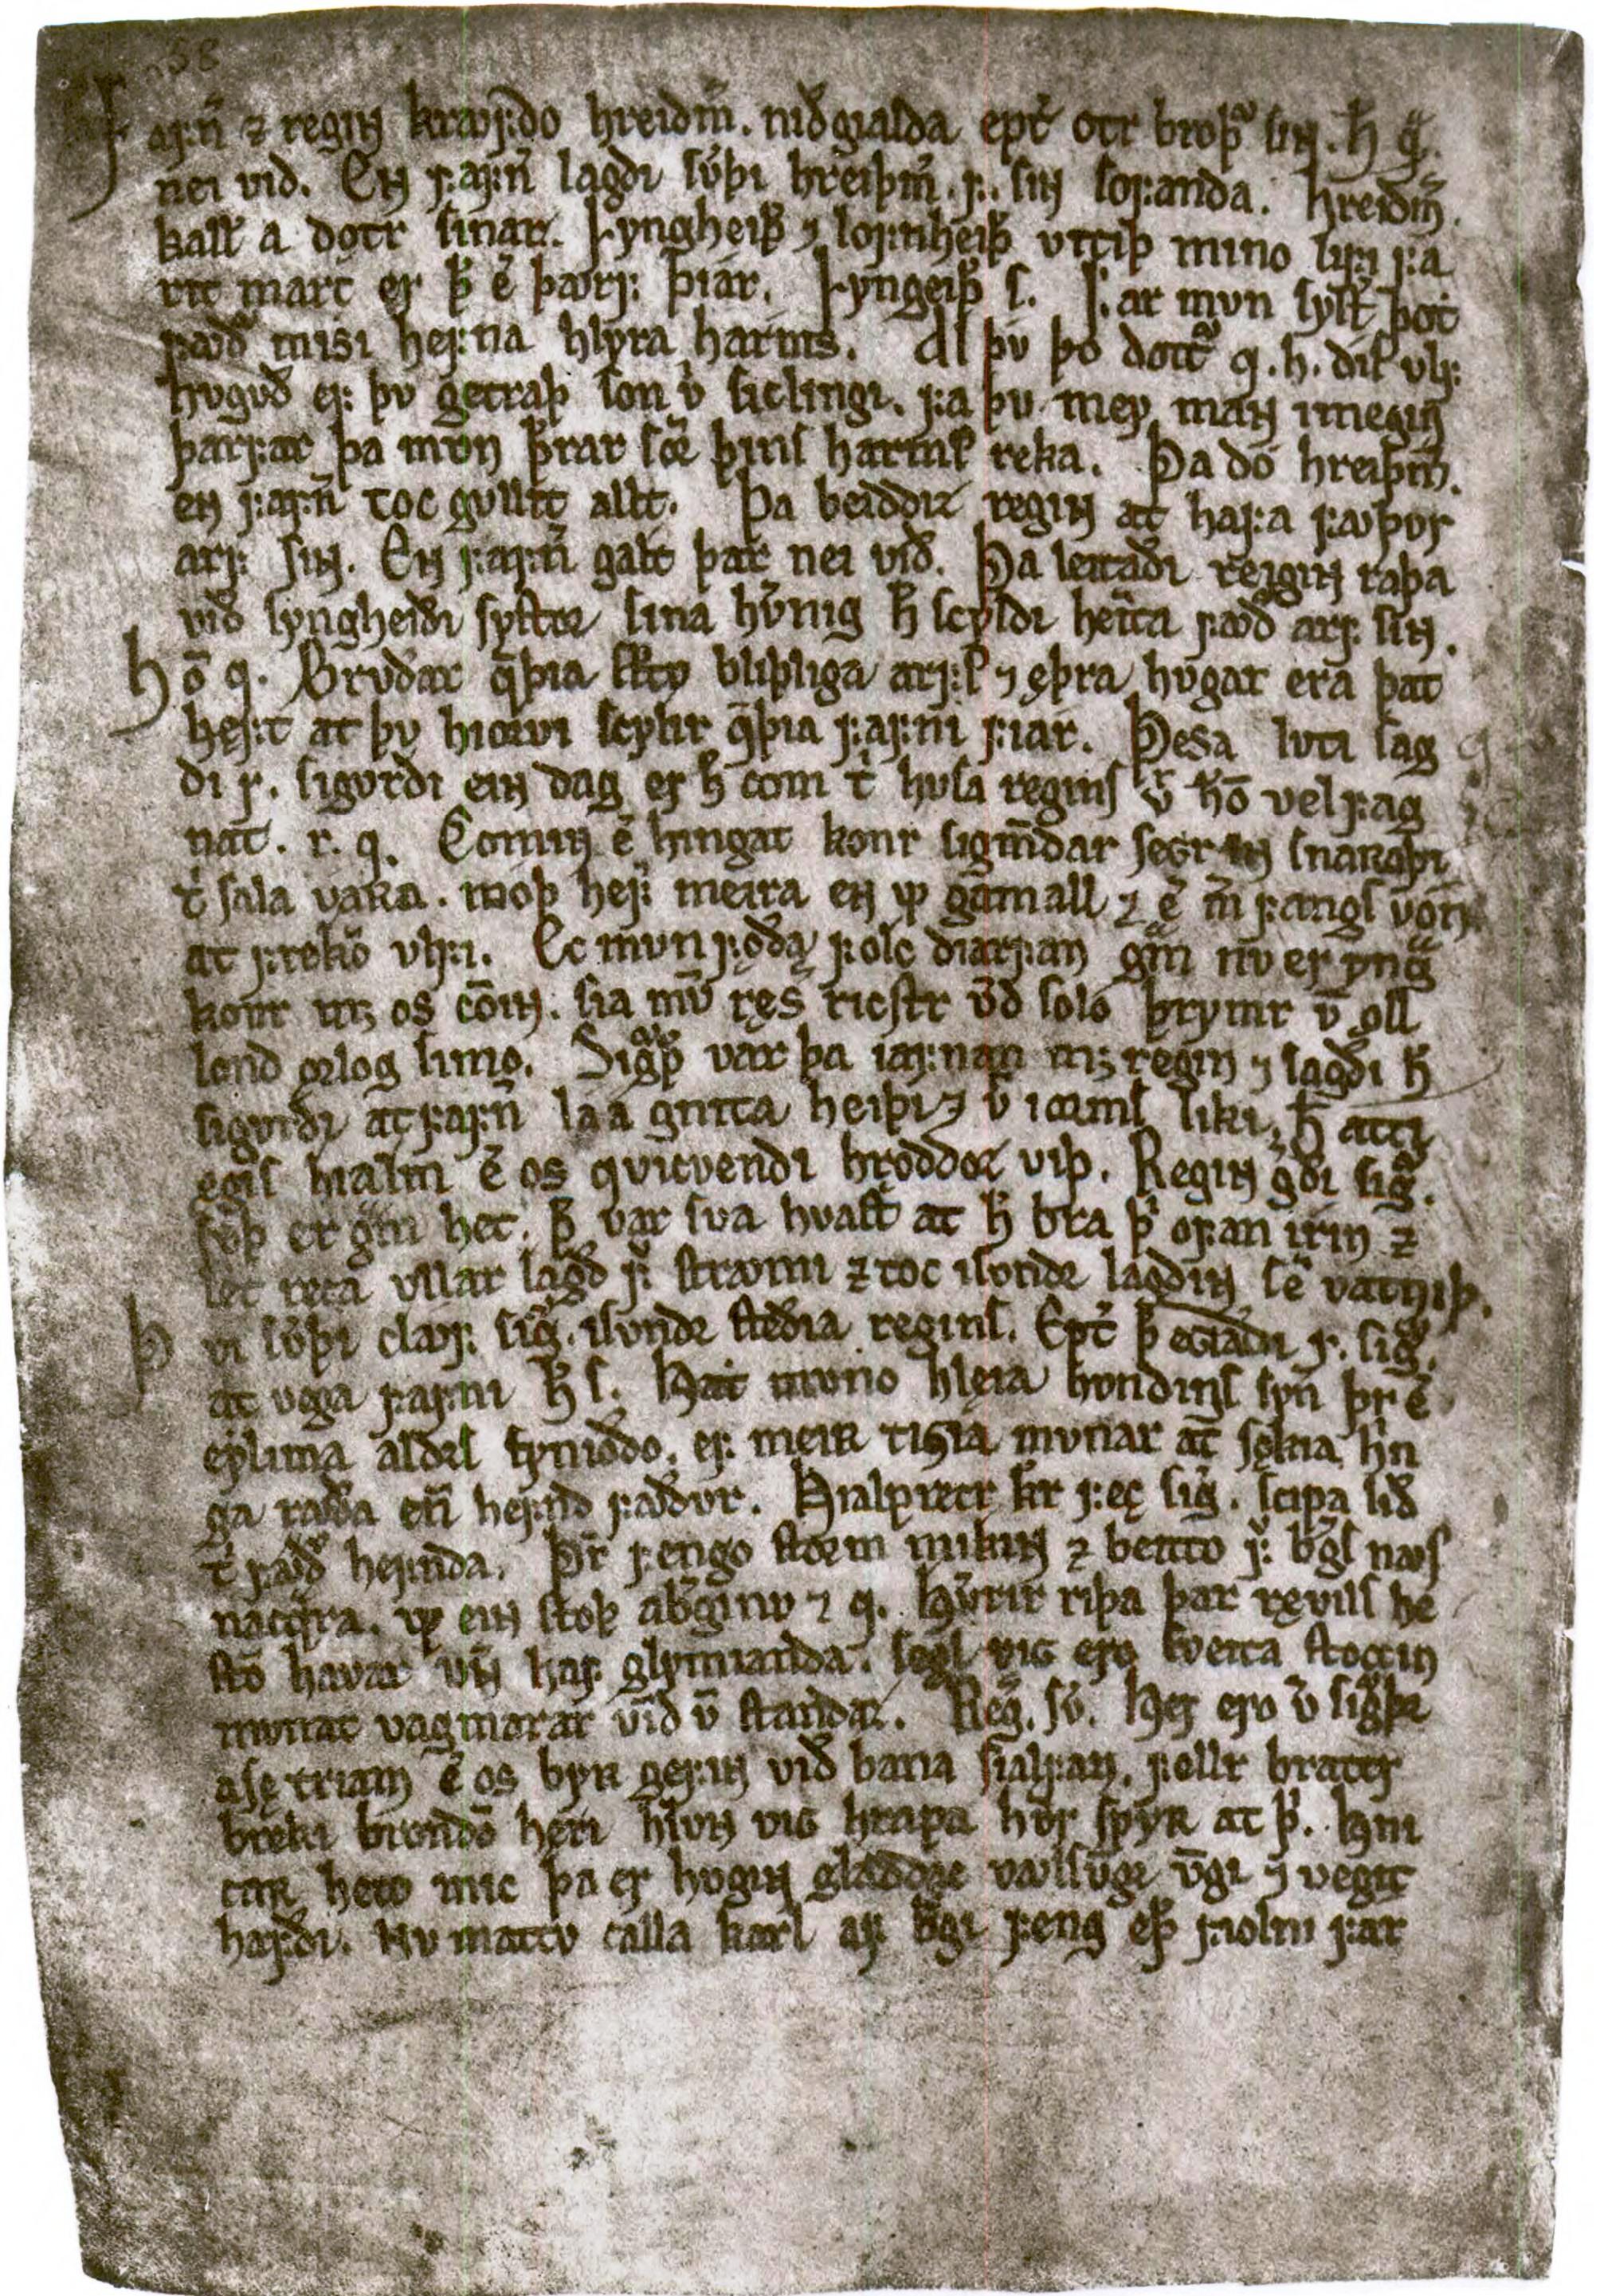 58
Fafn̄ ⁊ regin krꜹfðo hreiðm̄. niðgialda ept͛ otr broþ͛ ſin. h̄ q̄.
nei við. En fafn̄ lagði ſv͛þi hreiþm̄. f. ſin ſofanda. hreiðm̄.
kall͛ a dǫtr ſinar. Lyngheiþ ⁊ lofnheiþ vitiþ mino lifi fa
rit mart er þ̄ ē þꜹrf þiár. Lyngeiþ ſ. Fár mvn ſyſt͛ þot
fꜹð͛ miſi hefna hlyra harms. Al þv þo dott͛ q. h. díſ vlf
hvgvð ef þv getraþ ſon v͛ ſiclingi. fa þv mey man imegin
þarfar þa mvn þ̄rar ſōr þinſ harmſ reka. Þa dó hreiþm̄.
en fafn̄ toc gvllit allt. Þa beiddiz regin at hafa fꜹþvr
arf ſin. En fafn̄ galt þar nei við. Þa leitaði reigin raþa
við lyngheiði ſyſtor ſina hv͛nig h̄ ſcyldi heīta fꜹð arf ſin.
hō q. Brvðar q̄þia ſk̄tv bliþliga arfſ ⁊ ęþra hvgar era þat
hęft at þv hiorvi ſcylir q̄þia fafni fiár. Þeſa lvti ſag
di r. ſigvrði ein dag er h̄ com t͛ hvſa reginſ v͛ hō vel fag
nat. r. q. Comin ē hingat konr ſigm̄dar ſegr in ſnarraþi
t͛ ſala vára. moþ hef͛ meira en maðr gamall ⁊ ē m̄ fangſ vōn
at frekō vlfi. Ec mvn fǫða folc diarfan gm̄ nv er yngva
konr m; os cōin. ſia mv̄ ręſ̄ ricſtr v̄d ſolo þrymr v̄ ǫll
lond orlog ſimo. Sigþ̄ var þa iafnan m; regin ⁊ ſagði h̄
ſigvrdi at fafn̄ la a gnita heiþi ⁊ v͛ i ormſ liki, h̄ atti
egiſ hialm ē os qvicvendi hrǫddoz viþ. Regin g͛ði ſiḡ.
ſv͛þ er gm̄ het. þ̄ var ſva hvaſt at h̄ bra þ͛ ofan irín ⁊
let reca vllar lagð f͛ ſtrꜹmi ⁊ toc iſvndr lagðin ſē vatniþ.
Þvi ſv͛þi clꜹf ſiḡ. iſvndr ſteðia reginſ. Ept͛ þ̄ eGiaði r. ſiḡ.
at vega fafni h̄ ſ. Hát mvno hlęia hvndinſ ſyn̄ þr ē
eylima aldrſ ſynioðo. ef meiR tiGia mvnar at ſękia h̄n
ga rꜹða en̄ hefnd fꜹðvr. Hialprecr kr feç ſiḡ. ſcipa lið
t͛ fꜹð͛ hefnda. Þr̄ fengo ſtorm mikin ⁊ beitto f͛ b͛gſ naſ
nacq̄ra. maðr ein ſtoþ ab͛ginv ⁊ q. Hv͛rir riþa þar ręvilſ he
ſtō hávar vn̄ haf glymianda. ſegl vig ero ſveita ſtoccin
mvnat vagmarar vīd v̄ ſtandaz. Reg̅. ſv͛. Her ero v͛ ſig̅þr
aſę triam ē os byR gefin við bana ſialfan. fellr brattr
breki brondō hęri hlvn vig hrapa hv͛r ſpyR at þ͛. Hni
car heto mic þa er hvgin gladdi vꜹlſvgr v̄gi ⁊ vegit
hafði. Nv mattv calla karl af b͛gi feng eþ̄ fiolni far